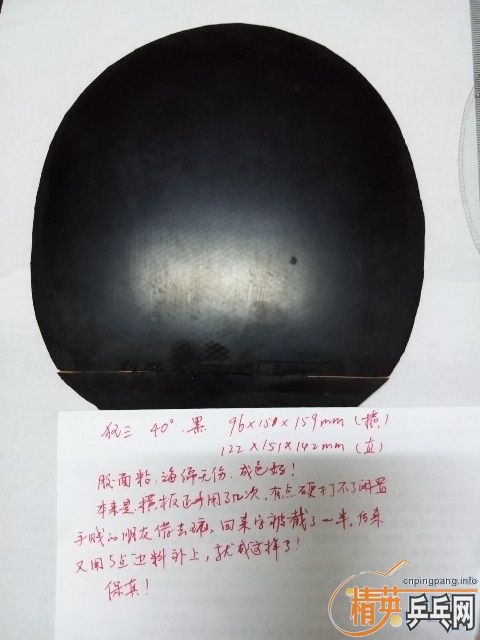 狂三 40° 黑 96×150×159mm (横)
122×151×142mm (直)
胶面粘、海绵无伤、成色好!
本来是横板正手用了几次,有点硬打不了闲置
手贱的朋友借去玩,回来字被裁了一半,后来
又用5点边料补上,就成这样了!
保真!
cnpingpang.info
精英乒乓网